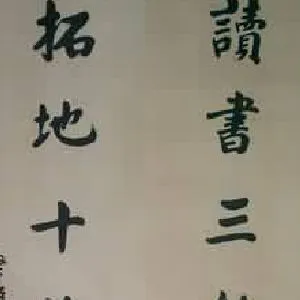 讀書三
拓地十